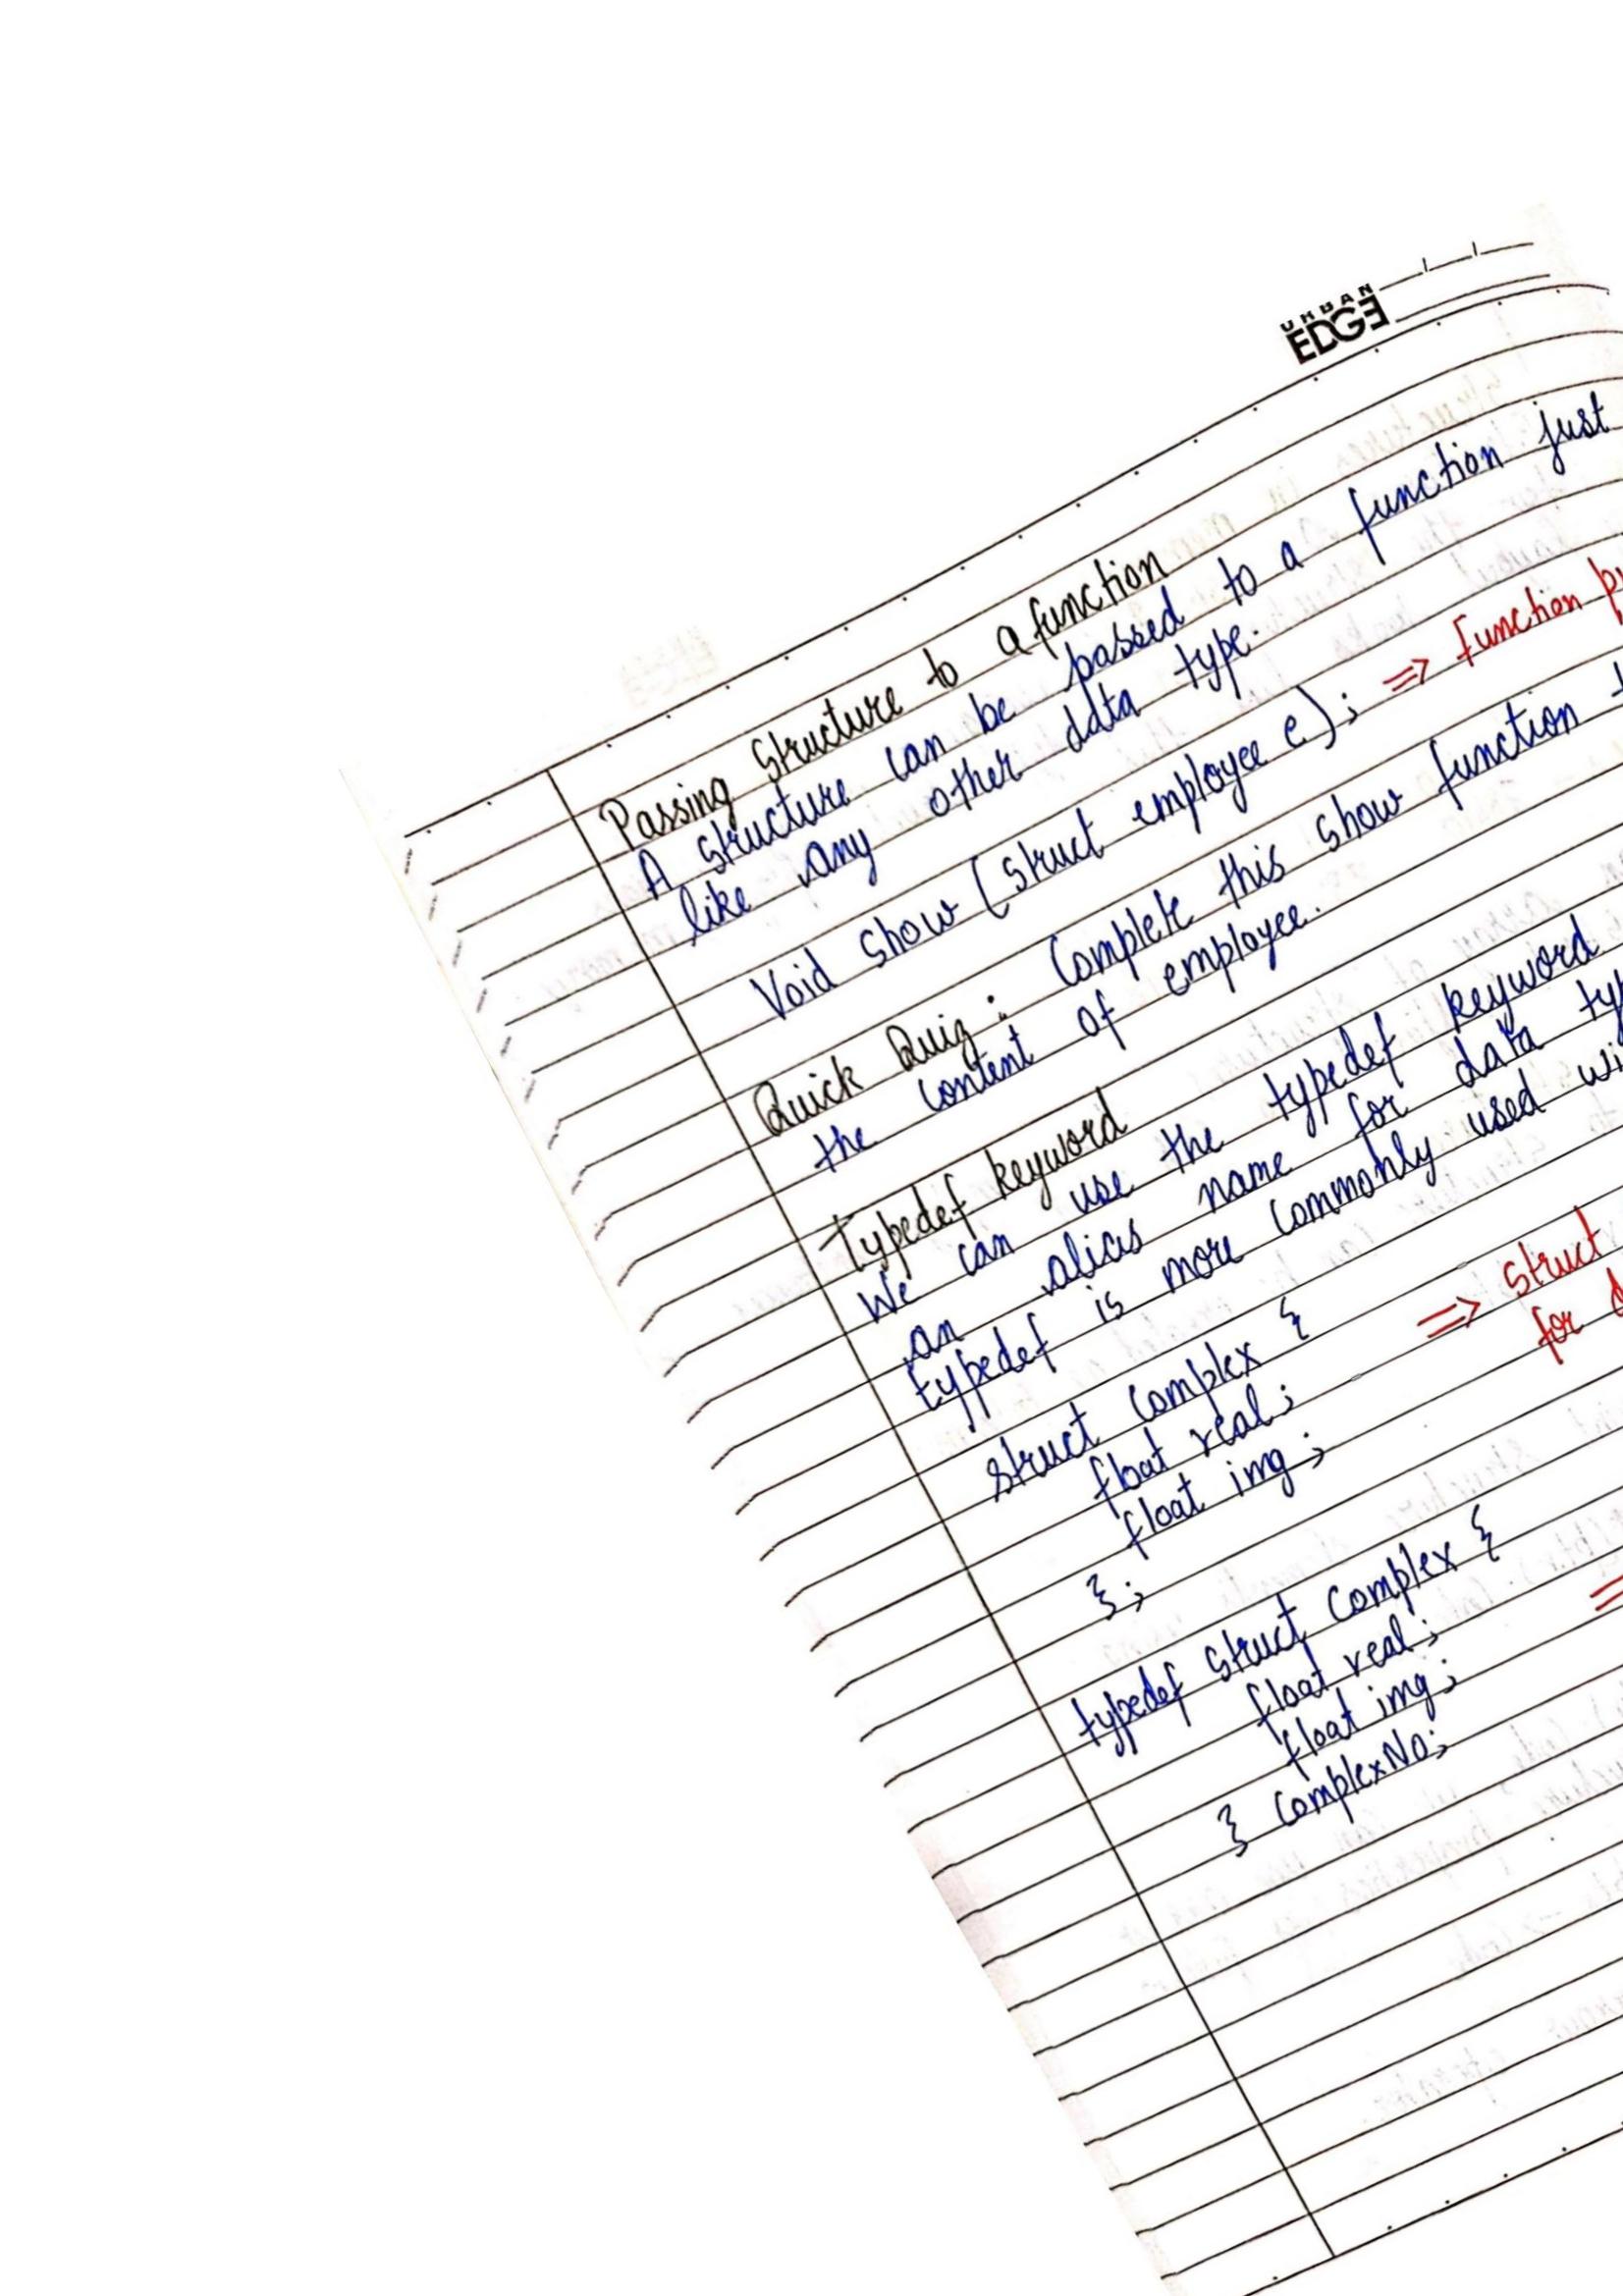 URBAN
EDGE
Passing Structure to a function
A structure can be passed to a function just
like any other data type.
Void show (struct employee e); => Function
Quick Quiz: Complete this show function
the content of employee.
Typedef keyword
We can use the typedef keyword
an alias name for data
typedef is more commonly used
struct Complex { => struct
float real; for
float img;
};
typedef struct Complex { =
float real;
float img;
} ComplexNo;